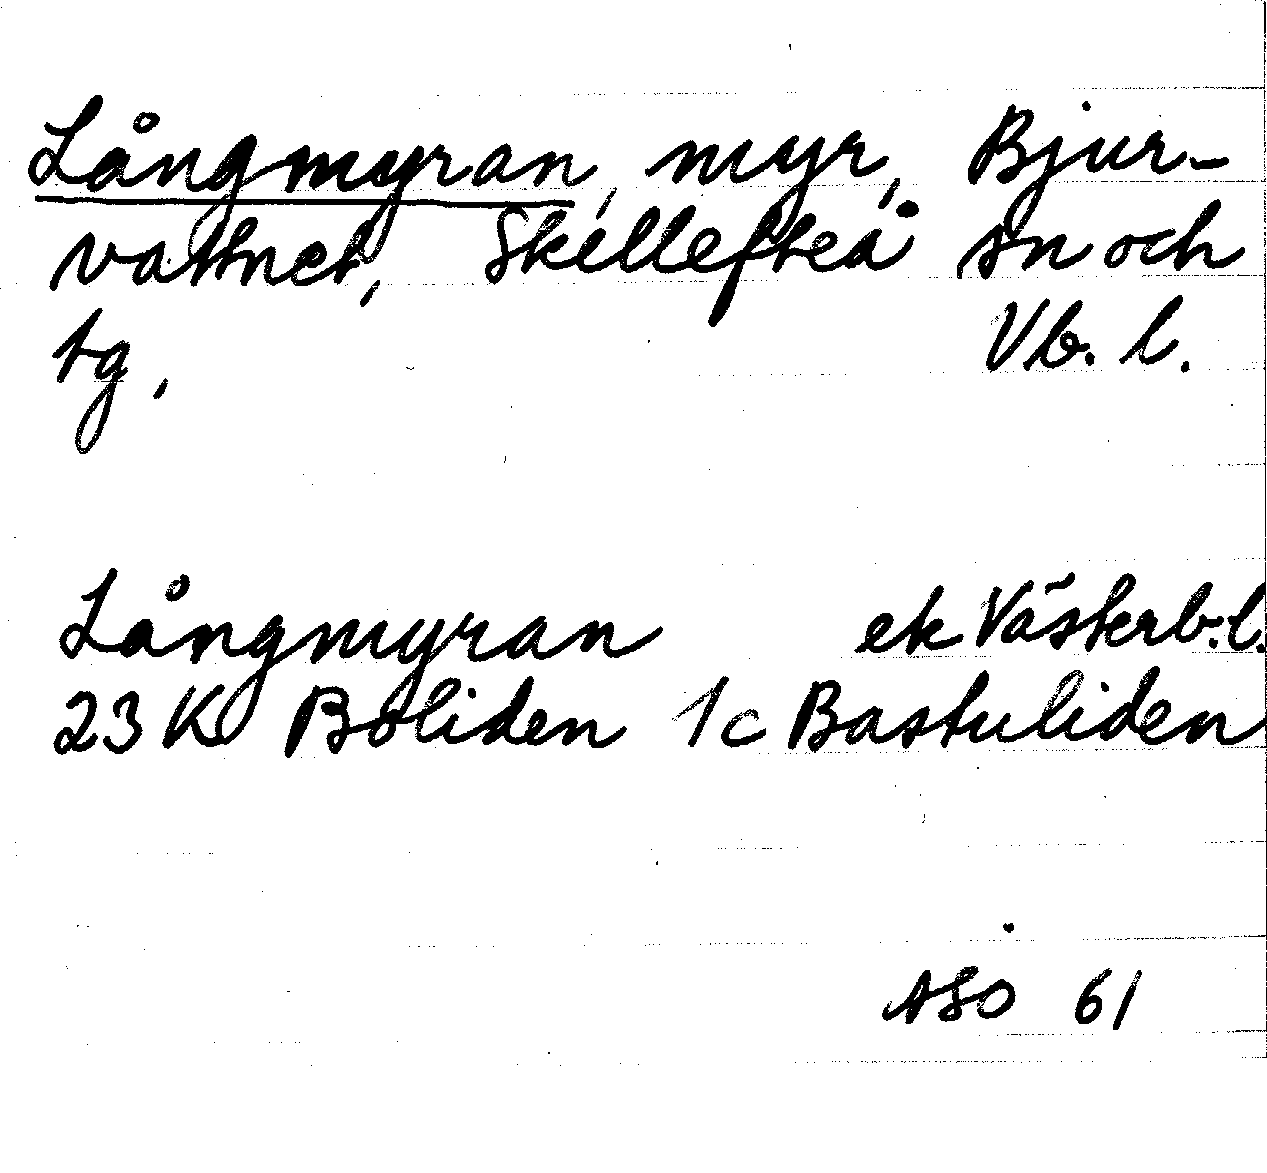 Långmyran, myr, Bjur-
vattnet, Skellefteå sn och
tg, Vb. l.
Långmyran ek Västerb. l.
23 K Boliden 1c Bastuliden
ASO 61